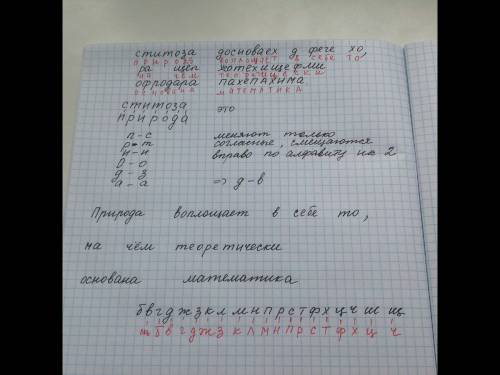 ститоза досноваех д феге хо,
природа воплощает в себе то,
ра щеп хотехищефли
на чём теоретически
офродара пахепахима
основана математика
ститоза это
природа
п-с меняют только
р-т согласные, смещаются
и-и вправо по алфавиту на 2
о-о
д-з
а-а ⇒ д-в
Природа воплощает в себе то,
на чём теоретически
основана математика
бвгджзклмнпрстфхцчшщ
бвгджзклмнпрстфхцч